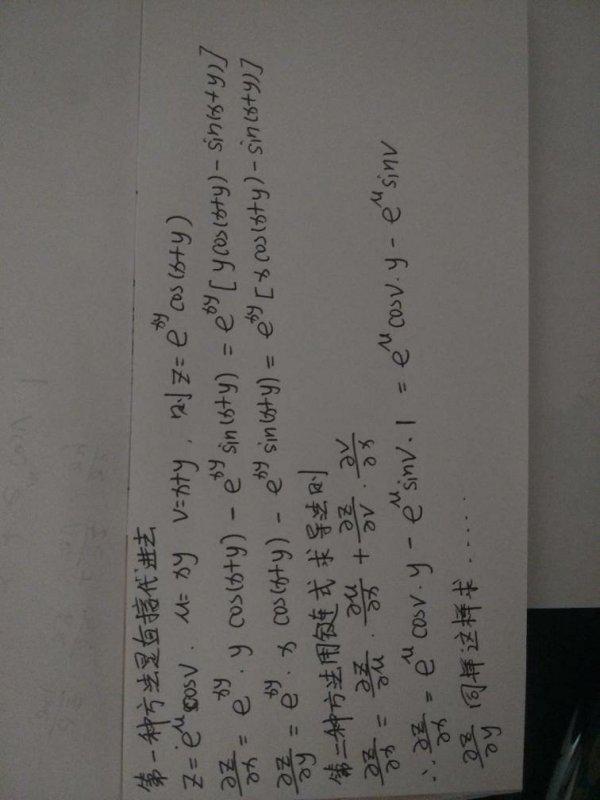 第一种方法是直接代进去
z=e^u cosv. u=xy v=x+y, 则 z=e^{xy} cos(x+y)
∂z/∂x = e^{xy}·y cos(x+y) - e^{xy} sin(x+y) = e^{xy} [y cos(x+y) - sin(x+y)]
∂z/∂y = e^{xy}·x cos(x+y) - e^{xy} sin(x+y) = e^{xy} [x cos(x+y) - sin(x+y)]
第二种方法用链式求导法则
∂z/∂x = ∂z/∂u · ∂u/∂x + ∂z/∂v · ∂v/∂x
∴ ∂z/∂x = e^u cosv·y - e^u sinv·1 = e^u cosv·y - e^u sinv
∂z/∂y 同样这样求......